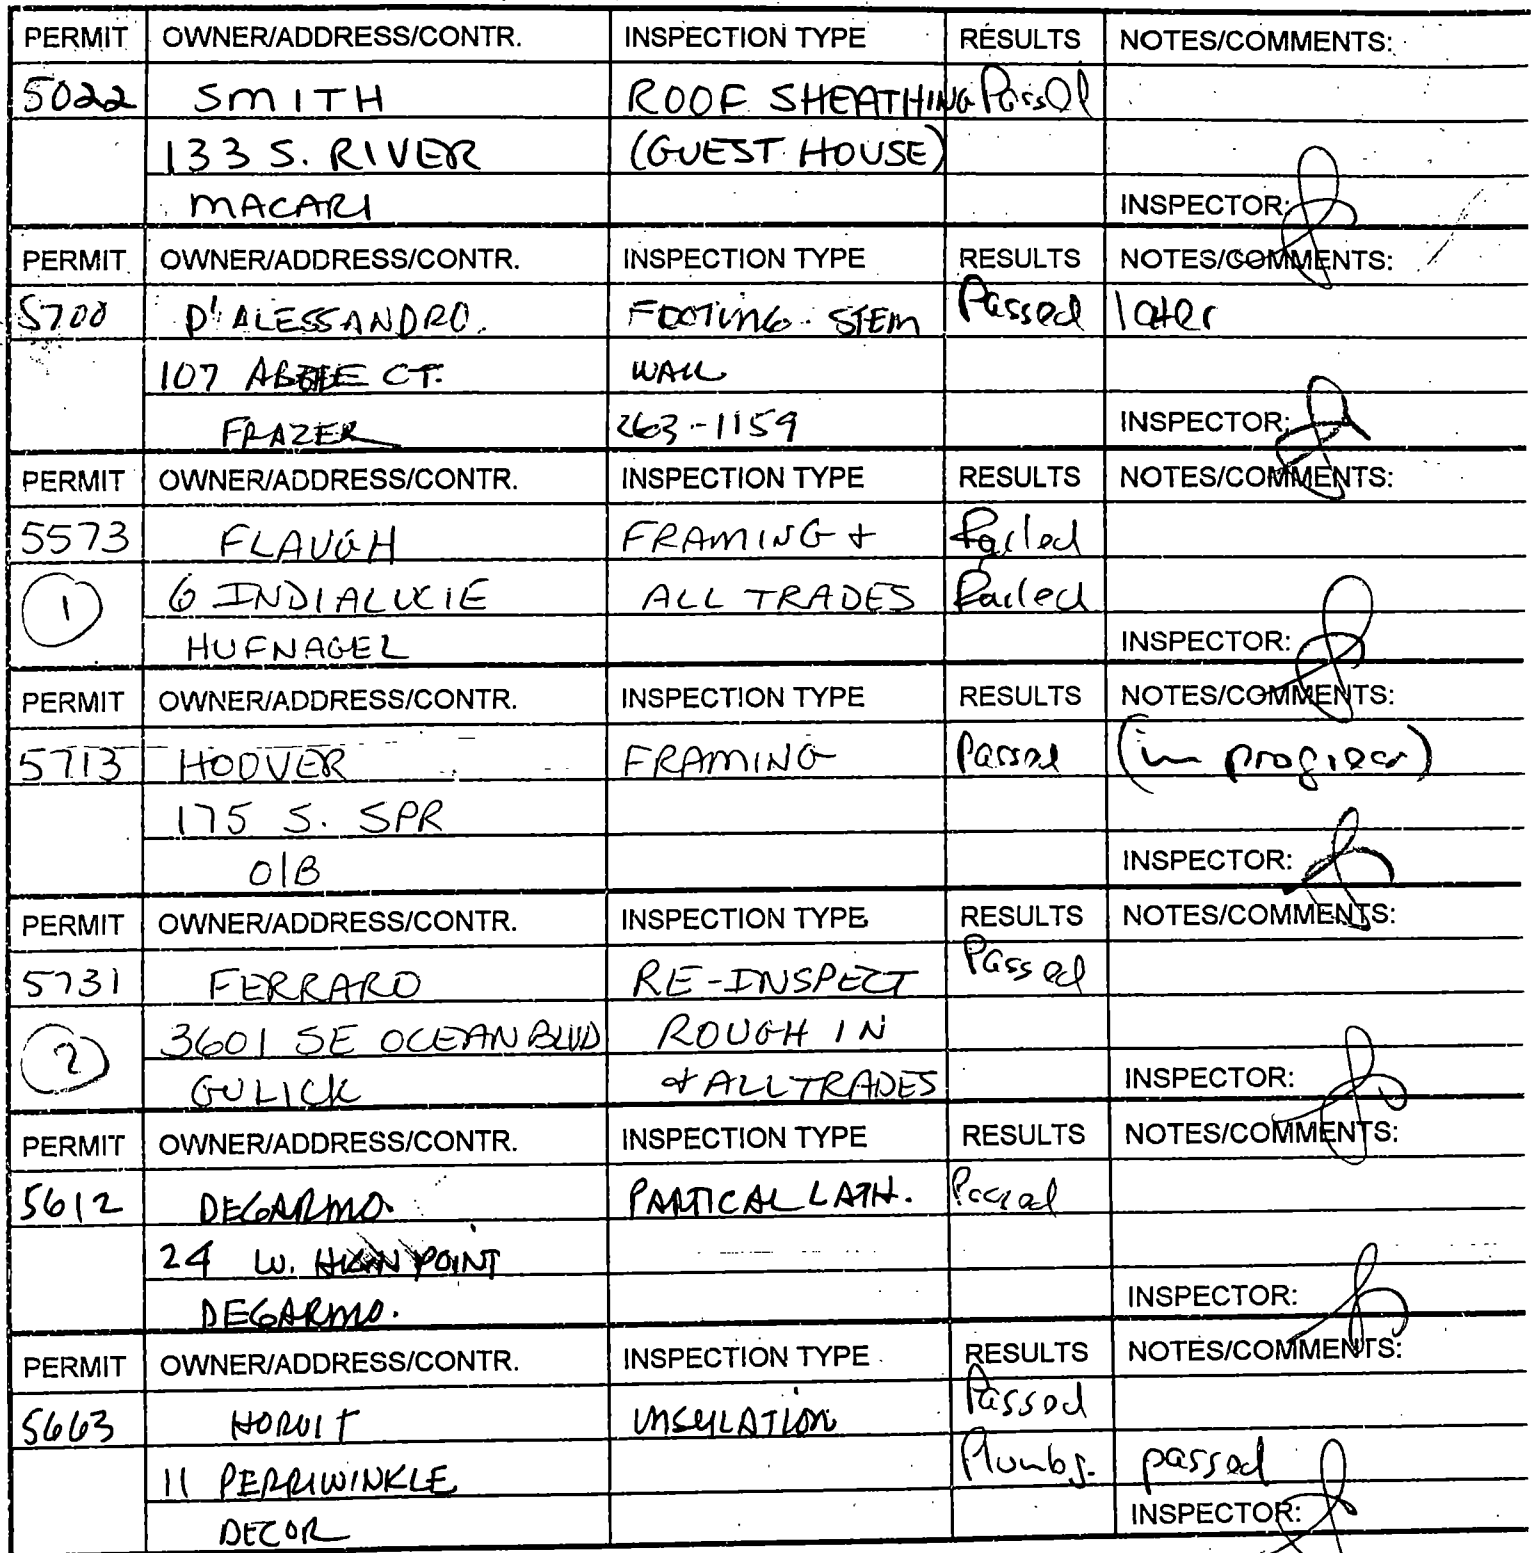 PERMIT OWNER/ADDRESS/CONTR. INSPECTION TYPE RESULTS NOTES/COMMENTS:
5022 SMITH ROOF SHEATHING Passed
133 S. RIVER (GUEST HOUSE)
MACARI INSPECTOR:
PERMIT OWNER/ADDRESS/CONTR. INSPECTION TYPE RESULTS NOTES/COMMENTS:
5700 D'ALESSANDRO. FOOTING STEM Passed later
107 CT. WALL
FRAZER 263-1159 INSPECTOR:
PERMIT OWNER/ADDRESS/CONTR. INSPECTION TYPE RESULTS NOTES/COMMENTS:
5573 FLAUGH FRAMING + Failed
1 6 INDIALUCIE ALL TRADES Failed
HUFNAGEL INSPECTOR:
PERMIT OWNER/ADDRESS/CONTR. INSPECTION TYPE RESULTS NOTES/COMMENTS:
5713 HOOVER FRAMING Passed (in progress)
175 S. SPR
O/B INSPECTOR:
PERMIT OWNER/ADDRESS/CONTR. INSPECTION TYPE RESULTS NOTES/COMMENTS:
5731 FERRARO RE-INSPECT Passed
2 3601 SE OCEAN BLVD ROUGH IN
GULICK + ALL TRADES INSPECTOR:
PERMIT OWNER/ADDRESS/CONTR. INSPECTION TYPE RESULTS NOTES/COMMENTS:
5612 DEGARMO. PARTICAL LATH. Passed
24 W. HIGH POINT
DEGARMO. INSPECTOR:
PERMIT OWNER/ADDRESS/CONTR. INSPECTION TYPE RESULTS NOTES/COMMENTS:
5663 HORVIT INSULATION Passed
11 PERRIWINKLE Plumbg. passed
DECOR INSPECTOR: